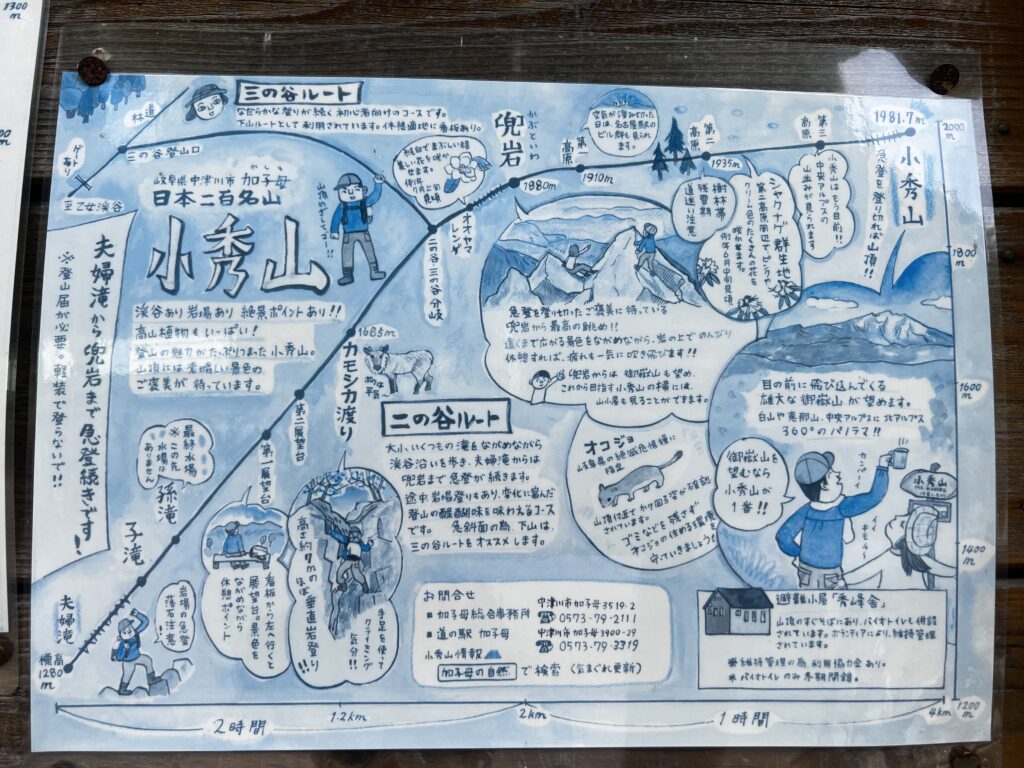 1300
m
00
m
三の谷ルート
なだらかな登りが続く初心者向けのコースです。
下山ルートとして利用されています。(休憩適地に看板あり。)
林道
ゲートあり
三の谷登山口
至乙女渓谷
岐阜県中津川市 加子母
かしも
日本二百名山
小秀山
渓谷あり 岩場あり 絶景ポイントあり!!
高山植物もいっぱい!
登山の魅力がたっぷりつまった小秀山。
山頂には素晴しい景色の
ご褒美が待っています。
山頂めざして
夫婦滝から兜岩まで急登続きです!
※登山届が必要。軽装で登らないで!!
紅白でまぶしい様
美しい花を咲か
せます。
例年
7月上旬
見頃
オオヤマ
レンゲ
二の谷・三の谷分岐
兜岩
かぶといわ
1980m
第一高原
1910m
空気が澄みきった
日は、名古屋駅の
ビル群も見られ
ます。
第二高原
1935m
樹林帯
残雪期
道迷い注意
シャクナゲ群生地
第二高原周辺でピンクや、
クリーム色のたくさんの花を
咲かせます。
例年6月中旬見頃
第三高原
小秀山はもう目前!!
中央アルプスの
山並みが見られます
1981.7m
小秀山
急登を登り切れば山頂!!
2000
m
1800
m
1600
m
1400
m
1200
m
急登を登り切ったご褒美に待っている
兜岩から最高の眺め!!
遠くまで広がる景色をながめながら、岩の上でのんびり
休憩すれば、疲れも一気に吹き飛びます!!
兜岩からは 御嶽山も望め、
これから目指す小秀山の横には、
山小屋を見ることができます。
目の前に飛び込んでくる
雄大な御嶽山が望めます。
白山や恵那山、中央アルプスに北アルプス
360°のパノラマ!!
御嶽山を
望むなら
小秀山が
1番!!
カンパーイ
小秀山
1685m
カモシカ渡り
ボクは
平気〜
第二展望台
第一展望台
最終水場
※この先
水場は
ありません
孫滝
子滝
夫婦滝
標高
1280m
岩場の急登
落石注意
看板から左へ行くと
展望台。景色を
ながめながら
休憩ポイント
高さ約7mの
ほぼ垂直岩登り!!
手足を使って
クライミング
気分!!
二の谷ルート
大小、いくつもの滝をながめながら
渓谷沿いを歩き、夫婦滝からは
兜岩まで急登が続きます。
途中岩場登りもあり、変化に富んだ
登山の醍醐味を味わえるコース
です。 急斜面の為、下山は、
三の谷ルートをオススメします。
オコジョ
岐阜県の絶滅危惧種に
指定
山頂付近でかけ回る姿が確認
されています。
ゴミなどを残さず
オコジョの住める環境を
守っていきましょう
お問合せ
■加子母総合事務所 中津川市加子母3519-2
☎0573-79-2111
■道の駅 加子母 中津川市加子母3900-29
☎0573-79-3319
小秀山情報
加子母の自然 で検索 (気まぐれ更新)
避難小屋「秀峰舎」
山頂のすぐそばにあり、バイオトイレも併設
されています。ボランティアにより、維持管理
されています。
※維持管理の為、利用協力金あり。
※バイオトイレのみ冬期閉鎖。
2時間
1.2km
2km
1時間
4km